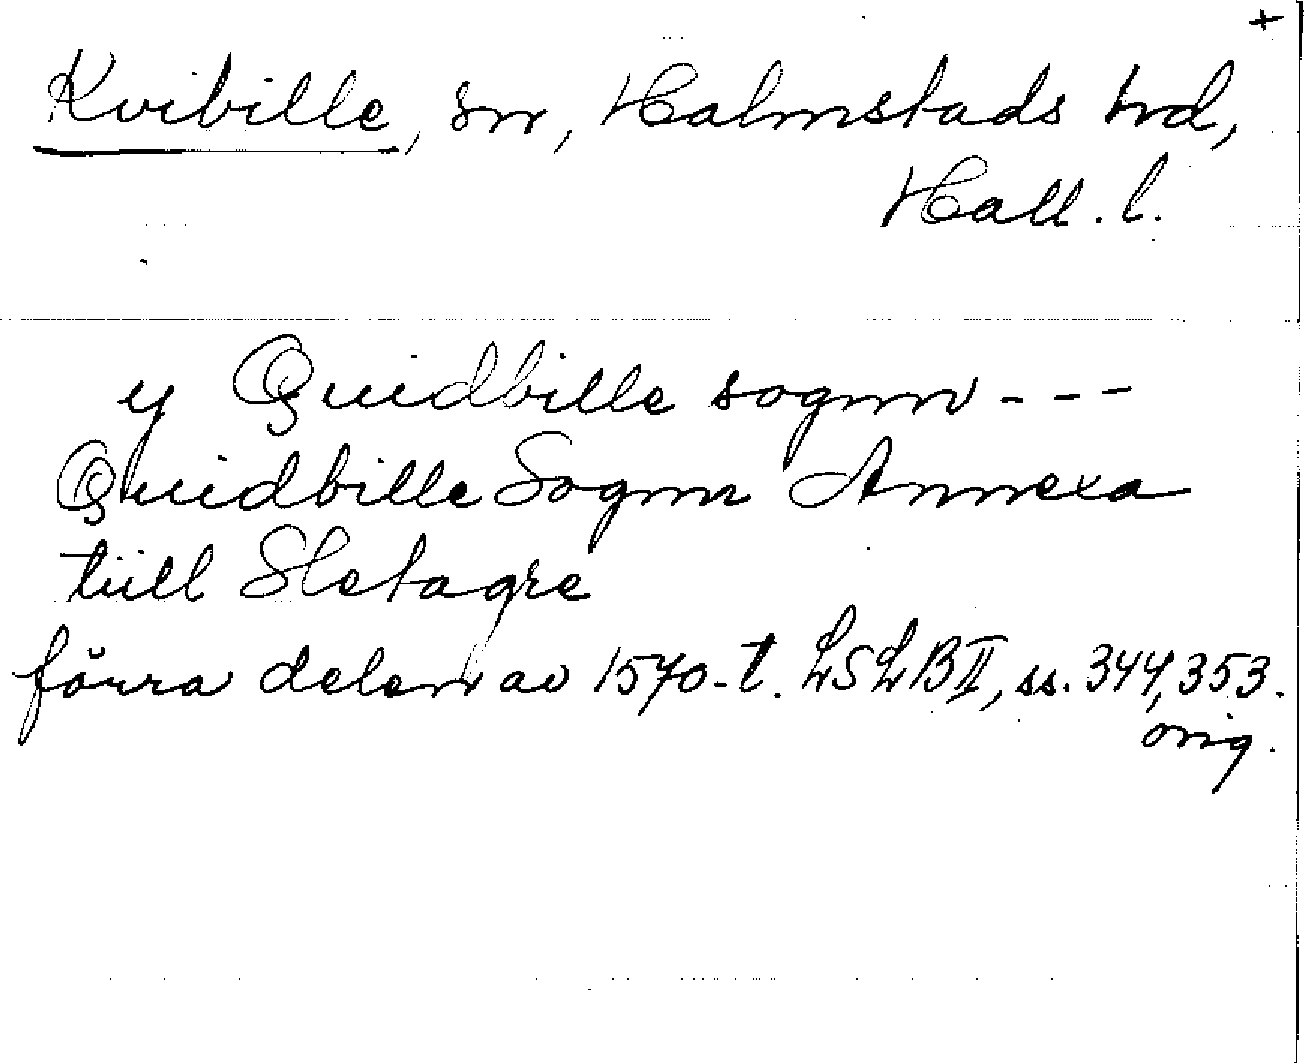 +
Kvibille, sn, Halmstads hd,
Hall. l.
y Quidbille sognn - - -
Quidbille Sognn Annexa
tiill Sletagre
förra delen av 1570-t. LSLB II, ss. 344, 353.
orig.